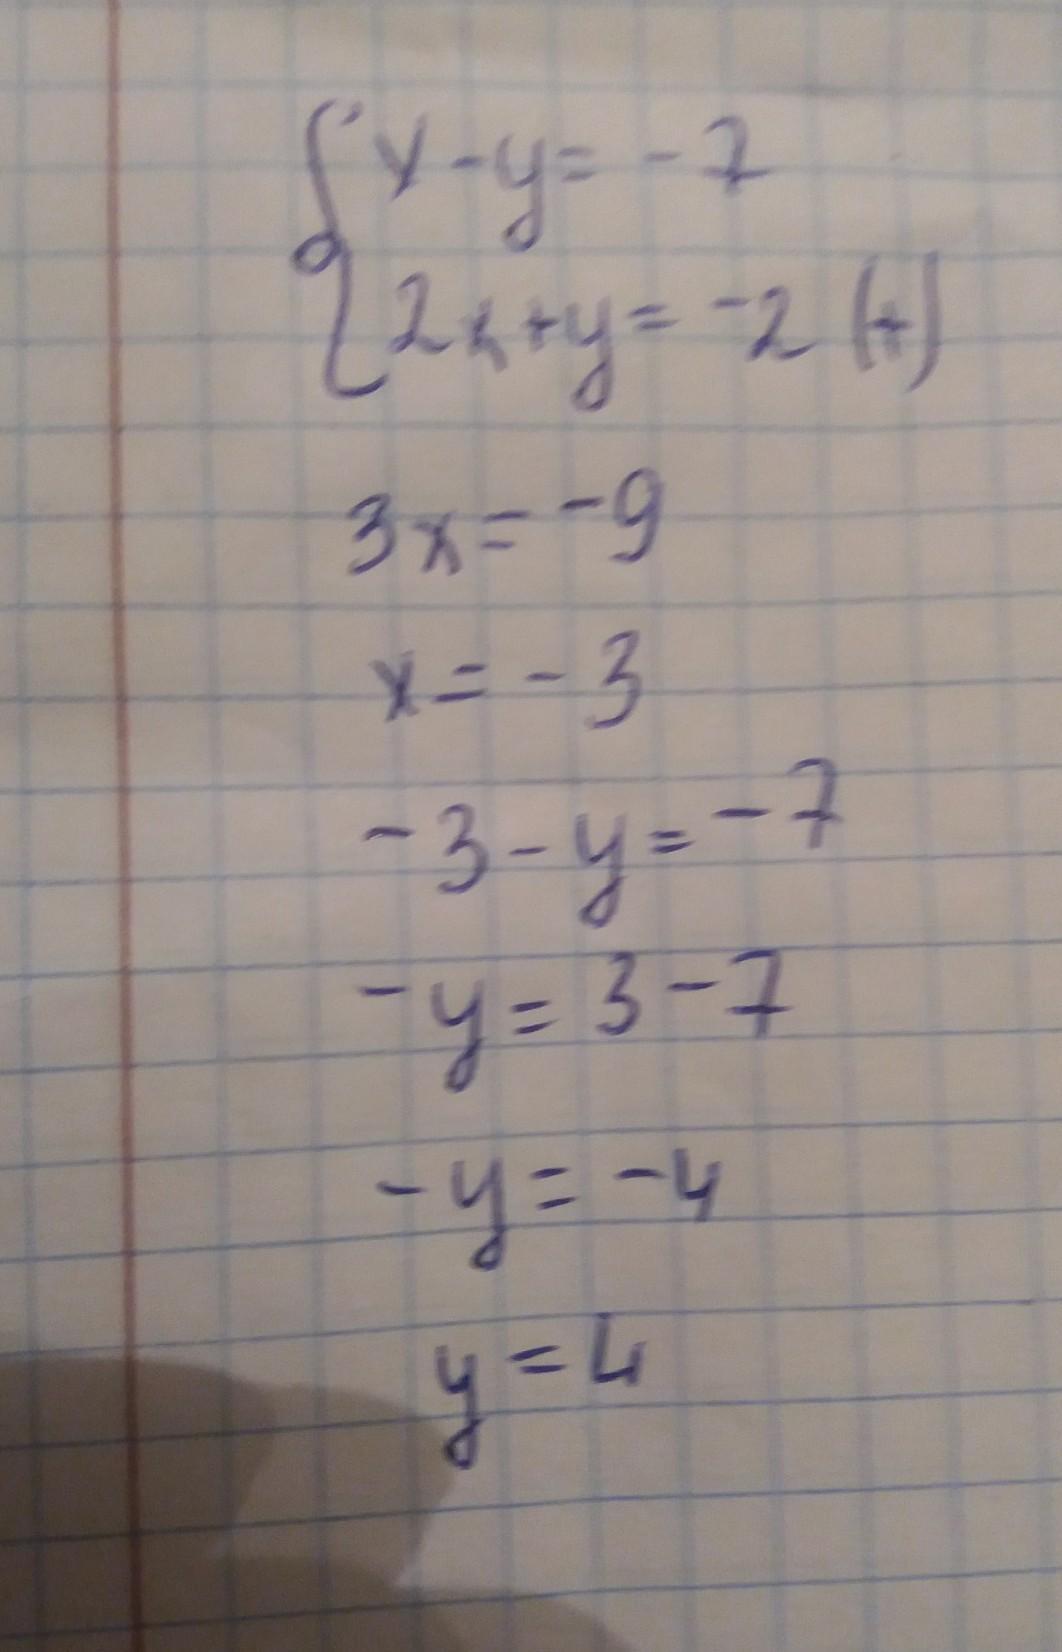 x - y = -7
2x + y = -2 (+)
3x = -9
x = -3
-3 - y = -7
-y = 3 - 7
-y = -4
y = 4